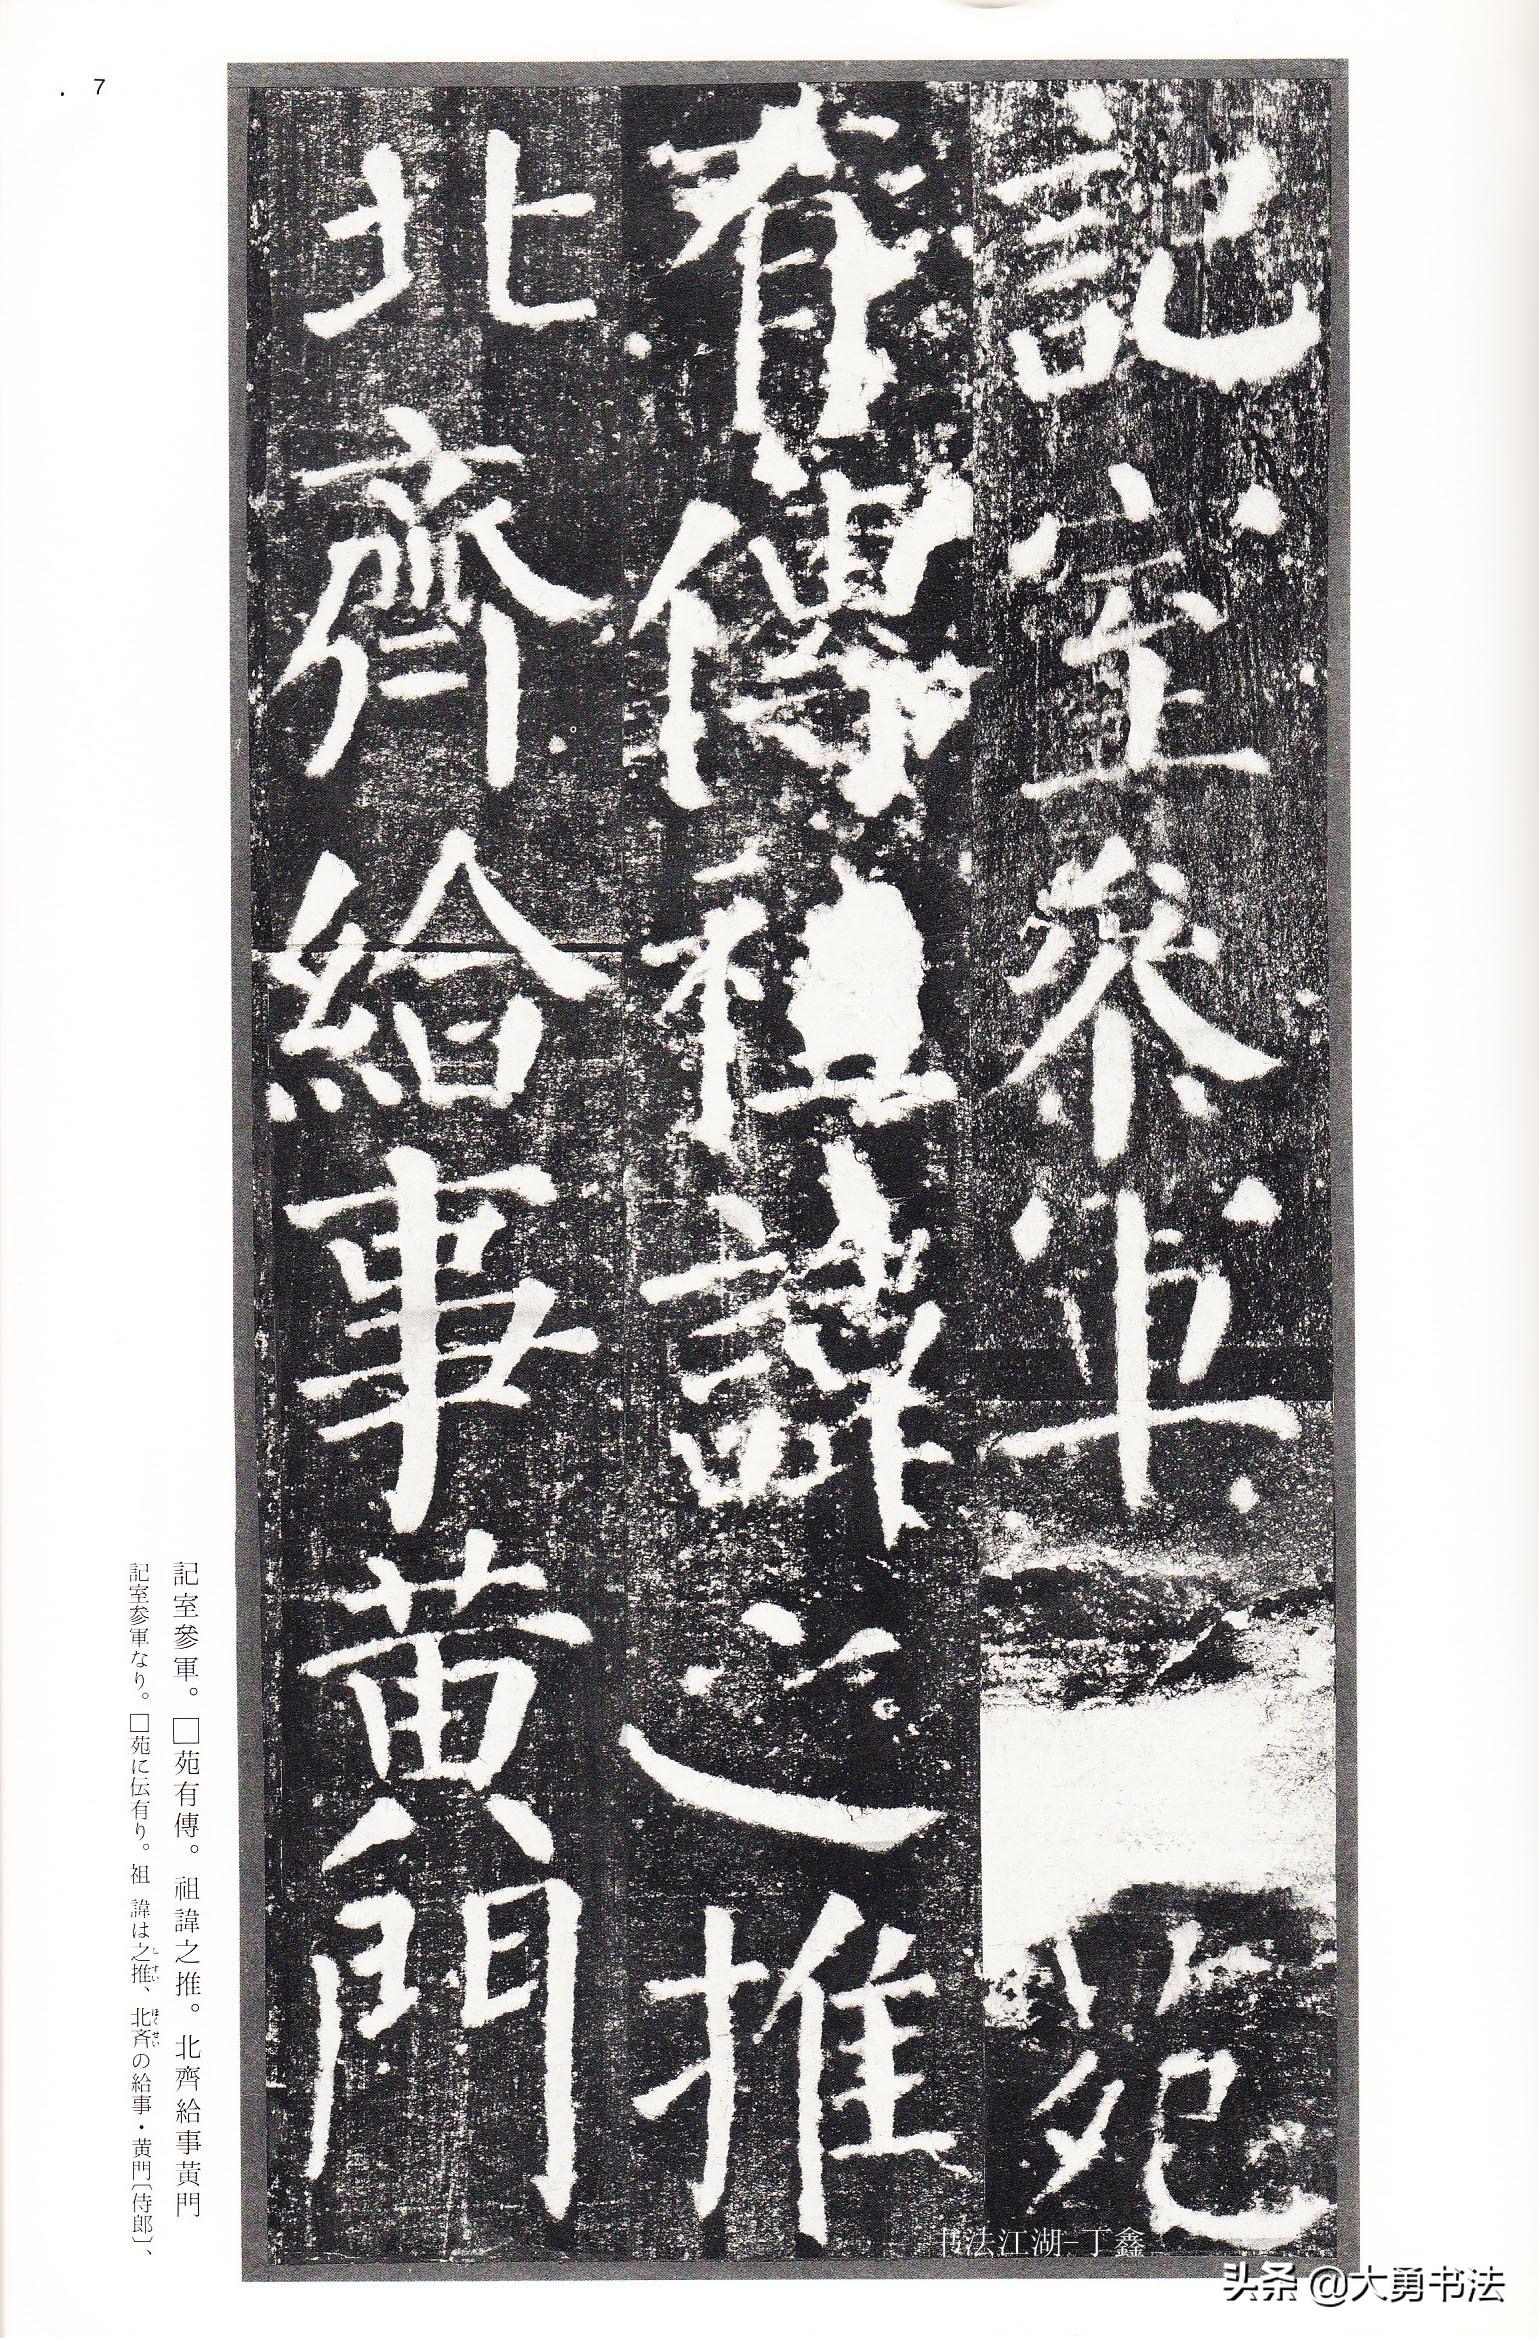 7
記室參軍
苑
有傳祖諱之推
北齊給事黃門
記室參軍。□苑有傳。祖諱之推。北齊給事黃門
記室参軍なり。□苑に伝有り。祖 諱は之推、北斉の給事・黄門〔侍郎〕、
しすい
ほくせい
书法江湖-丁鑫
头条 @大勇书法